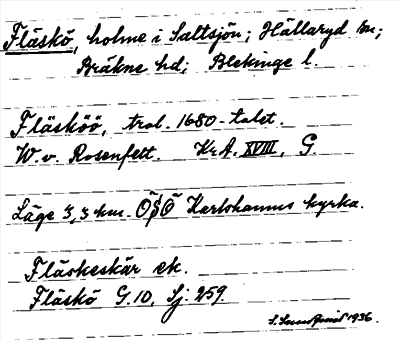 Fläskö, holme i Saltsjön; Hällaryd sn;
Bräkne hd; Blekinge l.
Fläsköö, trol. 1680-talet.
W. v. Rosenfelt. KrA. XVIII, G.
Läge 3,3 km. ÖSÖ Karlshamns kyrka.
Fläskeskär ek.
Fläskö G.10, Sj. 259.
1936.